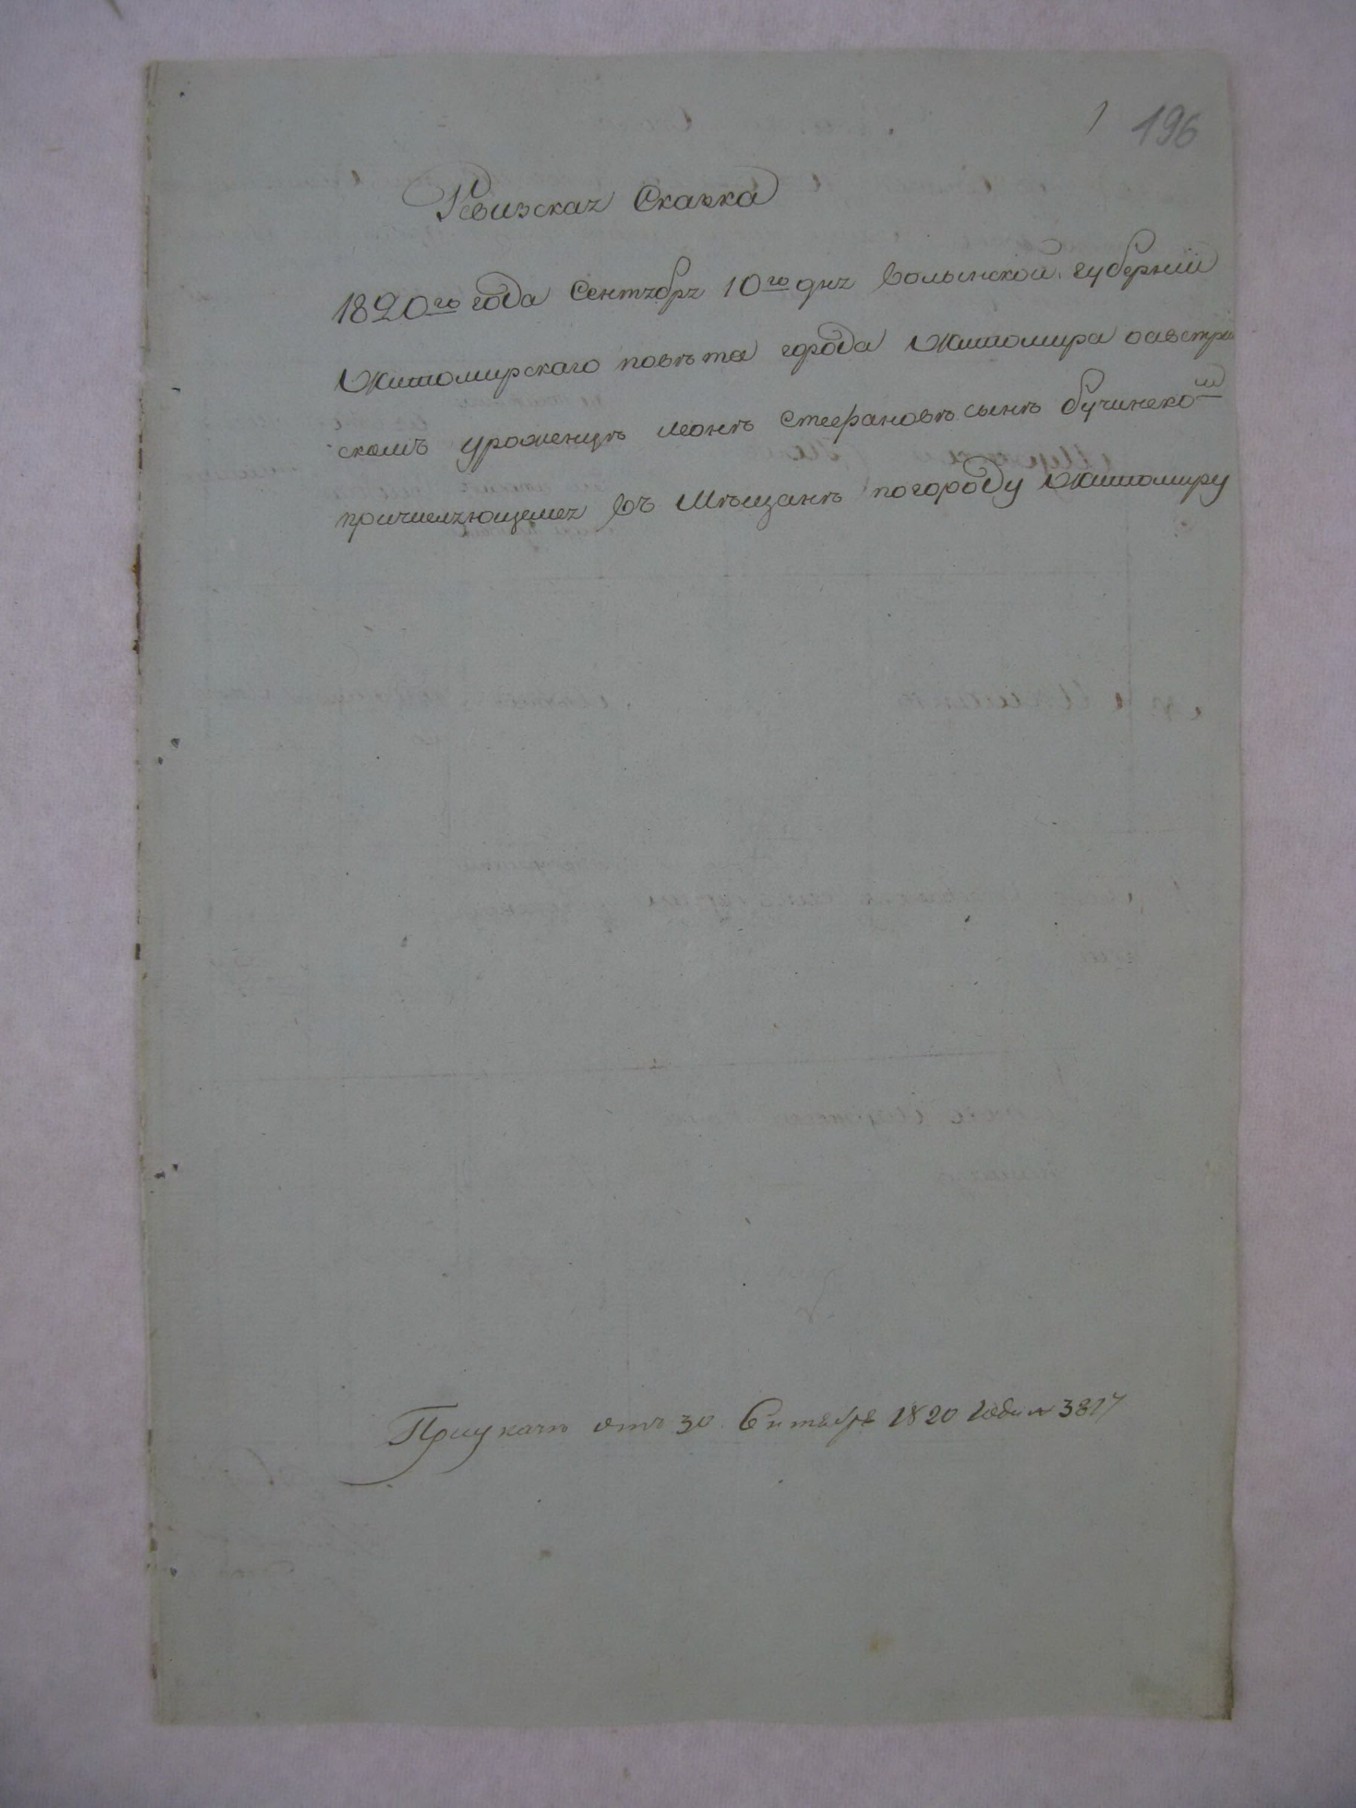 196
Ревизская Сказка
1820го года Сентября 10го дня волынской губернии
Житомирского повета города Житомира о австрій
скомъ уроженцѣ леонѣ Стефановѣ сынѣ бучинско
мъ
причисляющемся въ Мѣщанѣ по городу Житомиру
При указѣ отъ 30 Сентября 1820 года № 3817